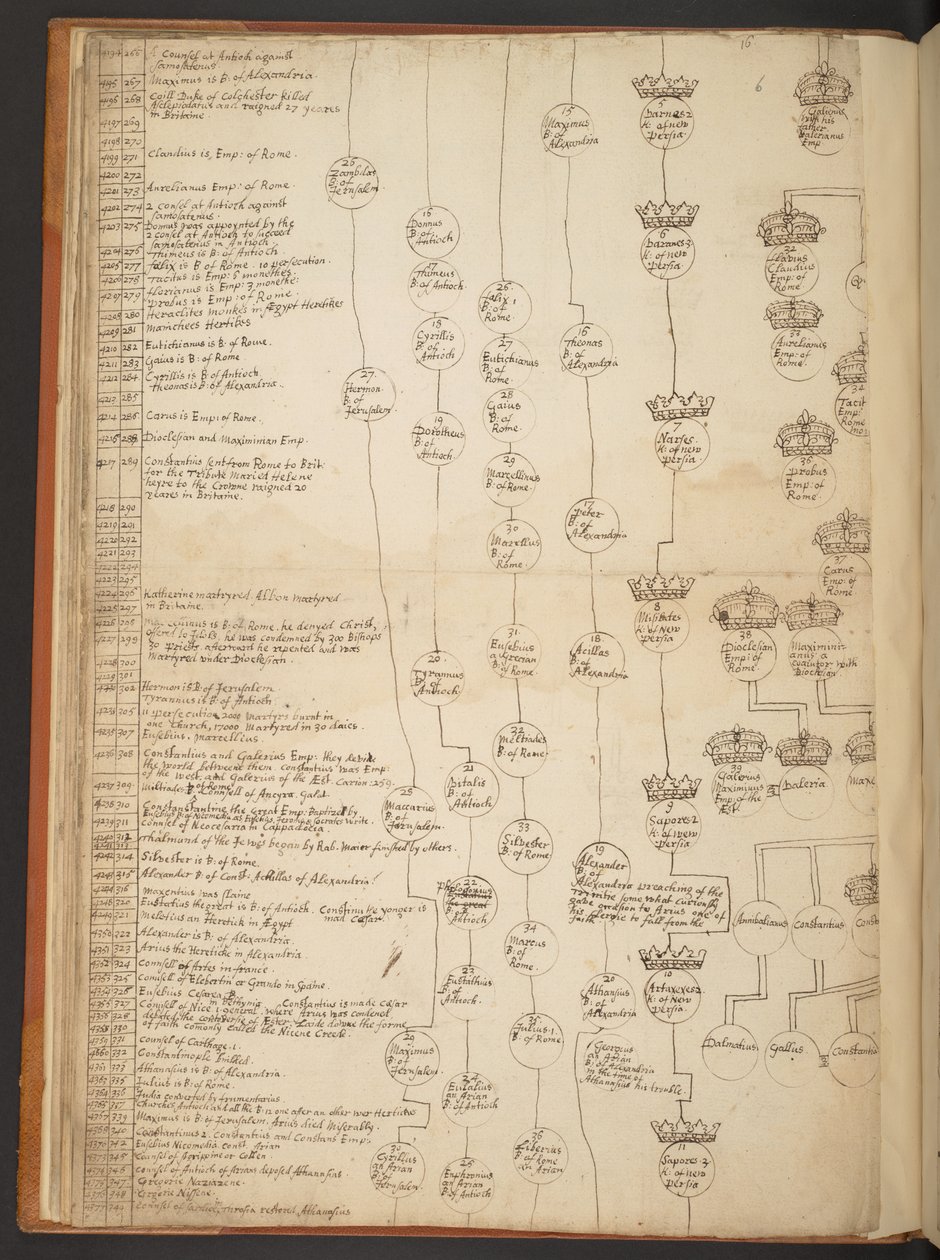 16
6
4194 266 A Counsel at Antioch against
Samosatenus.
4195 267 Maximus is B: of Alexandria.
4196 268 Coill Duke of Colchester killed
Asclepiodatus and raigned 27 yeares
in Britaine.
4197 269
4198 270
4199 271 Claudius is Emp: of Rome.
4200 272
4201 273 Aurelianus Emp: of Rome.
4202 274 2 consel at Antioch against
Samosatenus.
4203 275 Domus was appointed by the
2 consel at Antioch to succeed
Samosatenus in Antioch.
4204 276 Thimeus is B: of Antioch
4205 277 Fælix is B of Rome. 10 persecution.
4206 278 Tacitus is Emp: 6 monethes.
Florianus is Emp: 3 monethe:
4207 279 Probus is Emp: of Rome.
4208 280 Heraclites monkes in Ægypt Heretikes
4209 281 Manichees Hertikes
4210 282 Eutichianus is B: of Rome.
4211 283 Gaius is B: of Rome
4212 284 Cyrillis is B: of Antioch
Theonas is B: of Alexandria.
4213 285
4214 286 Carus is Emp: of Rome.
4216 288 Dioclesian and Maximinian Emp.
4217 289 Constantius sent from Rome to Brit:
for the Tribute Maried Helene
heyre to the Crowne raigned 20
yeares in Britaine.
4218 290
4219 291
4220 292
4221 293
4222 294
4223 295
4224 296 Katherine martyred. Albon Martyred
4225 297 in Britaine.
4226 298 is B: of Rome. he denyed Christ,
4227 299 offered to Idols, he was condemned by 300 Bishops
30 Priests afterward he repented and was
martyred under Dioclesian.
4228 300
4229 301
302 Hermon is B: of Jerusalem.
Tyrannus is B: of Antioch
4233 305 11 persecution 2000 Martyrs burnt in
one Church, 17000 Martyred in 30 daies.
4235 307 Eusebius, Marcellius.
4236 308 Constantius and Galerius Emp: they devide
the world betweene them. Constantius was Emp:
of the West and Galerius of the Æst. Carion. 259.
4237 309 Miltiades B: of Rome. Counsell of Ancyra. Galat.
4238 310 Constanstine the Great Emp: Baptized by
Eusebius B: of Nicomedia as Eusebius, Jerom & Socrates write.
4239 311 Counsel of Neocesaria in Cappadocia.
4240 312 Thalmund of the Jewes began by Rab. Maier finished by others.
4241 313
4242 314 Silvester is B: of Rome.
4243 315 Alexander B: of Const: Achillas of Alexandria.
4244 316 Maxentius was slaine
4248 320 Eustatius the great is B: of Antioch. Constinute yonger is
mad Cæsar.
4249 321 Meletius an Heretick in Ægypt
4350 322 Alexander is B: of Alexandria.
4351 323 Arius the Hereticke in Alexandria.
4352 324 Counsell of Artes in france.
4353 325 Counsell of Elebertin or Grando in Spaine.
4354 326 Eusebius Cesarea
in Bethynia. Constantius is made Cæsar
4355 327 Counsel of Nice 1. General. where Arius was condened
4356 328 debated the controversie of Æster. Laide downe the forme
4358 330 of faith comonly called the Nicene Creede.
4359 331 Counsel of Carthage. 1.
4360 332 Constantinople builded.
4361 333 Athanasius is B: of Alexandria.
4363 335 Julius is B: of Rome.
4364 336 India converted by frumentarius.
4365 337 Churches Antioch and all the B: in one after an other wer Hertickes
4367 339 Maximus is B: of Jerusalem. Arius died Miserally.
4368 340 Constantinus 2. Constantius and Constans Emp:
4370 342 Eusebius Nicomedia. const. Arian
4373 345 Counsel of Agrippine or Collen.
4374 346 Counsel of Antioch of Arians deposed Athannsius.
4375 347 Gregorie Nazianzene.
4376 348 Gregorie Nissene.
4377 349 Counsel of Sardice, Throsia restored Athanasius
26 Zambdas B: of Jerusalem
27. Hermon B: of Jerusalem
28 Maccarius B: of Jerusalem.
29 Maximus B: of Jerusalem
30 Cyrillus an Arian B: of Jerusalem
16 Domus B: of Antioch
17 Thimeus B: of Antioch.
18 Cyrillis B: of Antioch
19 Dorotheus B: of Antioch.
20 Tyrannus B: of Antioch
21 Vitalis B: of Antioch
22 Philogonius Antioch
23 Eustathius B: of Antioch.
24 Eulalius an Arian B: of Antioch
25 Euphronius an Arian B: of Antioch
26. Fælix 1 B: of Rome.
27 Eutichianus B: of Rome.
28 Gaius B: of Rome.
29 Marcellinus B: of Rome.
30 Marcellus B: of Rome.
31 Eusebius a Grecian B: of Rome.
32 Meltiades B: of Rome.
33 Silvester B: of Rome
34 Marcus B: of Rome.
35 Julius. 1. B: of Rome.
36 Liberius B: of Rome an Arian
15 Maximus B: of Alexandria
16 Theonas B: of Alexandria
17 Peter B: of Alexandria
18 Acillas B: of Alexandria
19 Alexander B: of Alexandria preaching of the
Trinitie some what curiously
gave occasion to Arius one of
his clergie to fall from the
faith
20 Athansius B: of Alexandria
Georgius an Arian B: of Alexandria in the time of Athannsius his trouble.
5 Baranes 2 K: of new Persia.
6 Baranes 3 K: of new Persia.
7 Narses. K: of new Persia
8 Misdates K: of New Persia
9 Sapores 2 K: of new Persia
10 Artaxexes 2. K: of New Persia
11 Sapores 3 K: of new Persia
Galienus with his father Valerianus Emp
32 Flavius Claudius Emp: of Rome
Q
33 Aurelianus Emp: of Rome.
34 Tacit Emp: Rome
36 Probus Emp: of Rome.
37 Carus Emp: of Rome
38 Dioclesian Emp: of Rome.
Maximinianus a coaiutor with Dioclesian.
39 Galerius Maximinus Emp: of the Æst.
Valeria.
Maxe
Annibalianus
Constantius
Const
Dalmatius
Gallus
Constantiu